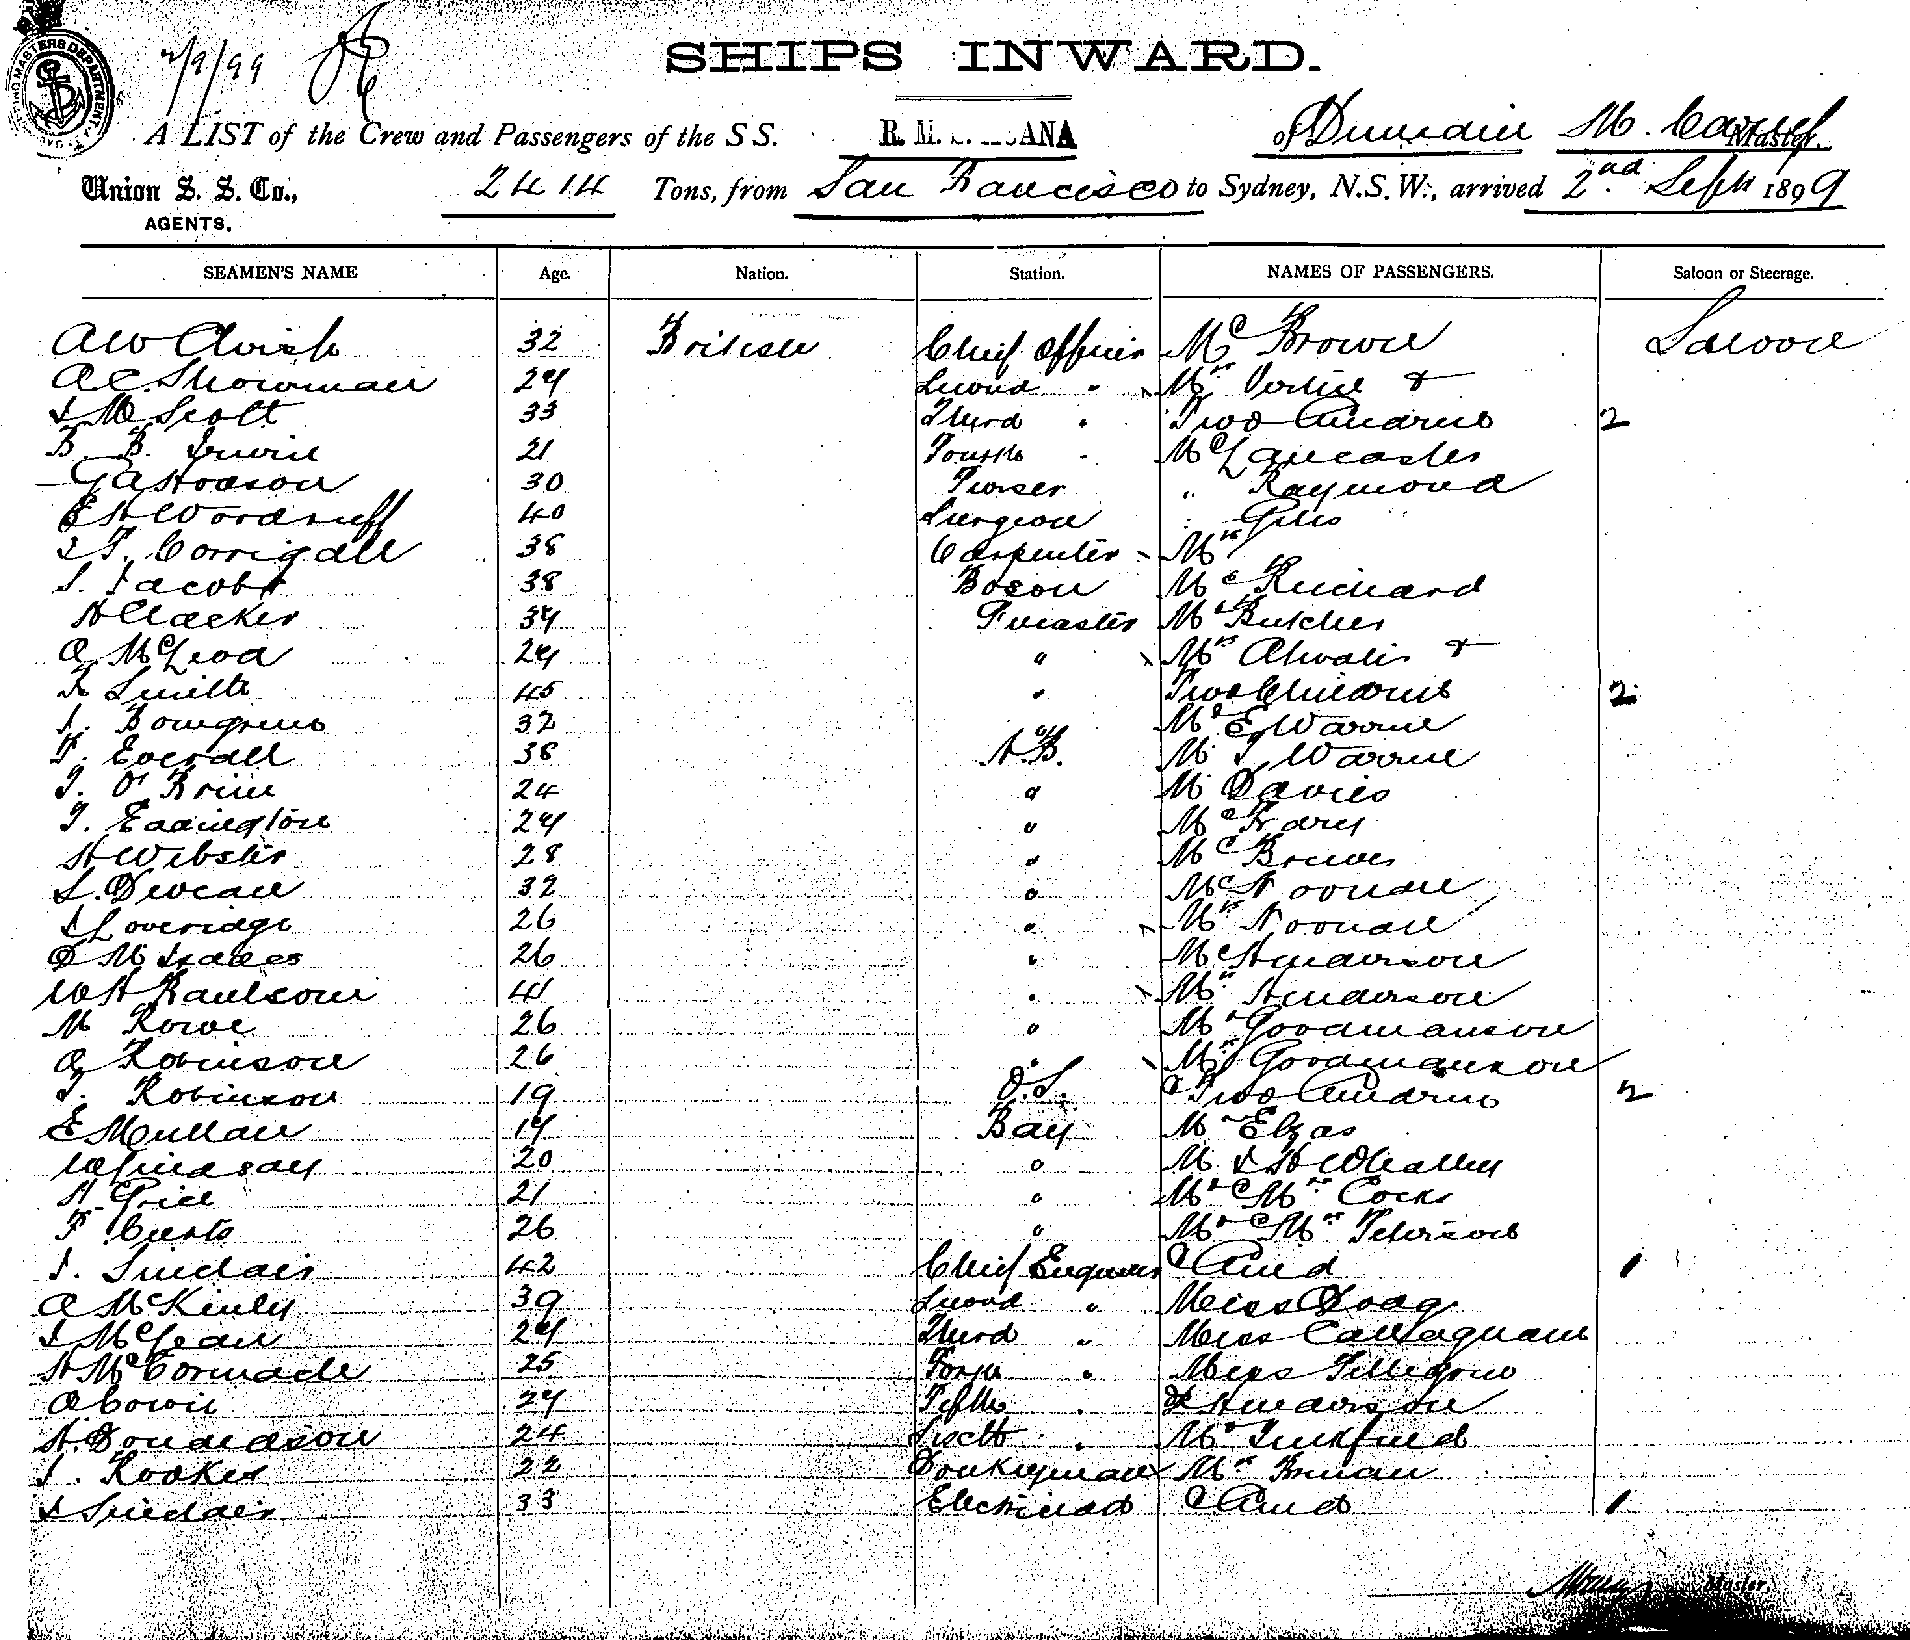 2/9/99
SHIPS INWARD.
A LIST of the Crew and Passengers of the S S. R. M. S. MOANA of Dunedin M. Carey Master.
Union S. S. Co., 2414 Tons, from San Francisco to Sydney, N.S.W., arrived 2nd Sept 1899
AGENTS.
SEAMEN'S NAME Age. Nation. Station. NAMES OF PASSENGERS. Saloon or Steerage.
A W 32 British Chief Officer Mr Brown Saloon
A C Showman 27 Second " Mrs &
J M Scott 33 Third " Two Children 2
B. B. Irwin 21 Fourth " Mr Lancaster
G A Hodson 30 Purser " Raymond
E H Woodruff 40 Surgeon " Giles
J T. Corrigall 38 Carpenter Mrs "
S. Jacobs 38 Bosun Mr Richard
H Clacker 37 Mr Butcher
A McLeod 27 " Mrs &
R Smith 45 " Two Children 2
J. 32 Mr E Warne
T. Everall 38 A.B. Mr J Warne
J. O'Brien 24 " Mr Davies
J. Eddington 27 " Mr
H Webster 28 " Mr Brewer
S. 32 " Mr Noonan
J Loveridge 26 " Mrs Noonan
D M Isaacs 26 " Mr Henderson
W H 41 " Mrs Henderson
M Rowe 26 " Mr Goodmanson
A Robinson 26 " Mrs Goodmanson
J. Robinson 19 O.S. & Two Children 2
E Mullan 17 Boy Mr Elzas
W Lindsay 20 " Mr J H Whalley
H Price 21 " Mr & Mrs Cocks
F. 26 " Mr & Mrs
J. Sinclair 42 Chief Engineer & Child 1
A McKinley 39 Second " Miss Hoag
J McLean 27 Third " Miss
H McCormack 25 Forth " Miss
A Cowie 27 Fifth " Henderson
H. Donaldson 24 Sixth " Mr
J. Rookes 22 Donkeyman Mrs
J Sinclair 33 & Child 1
Master.